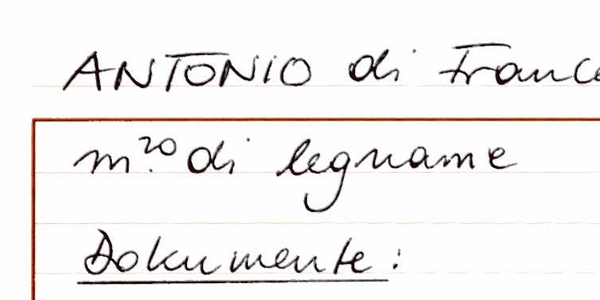 ANTONIO di France
m.ro di legname
Dokumente: